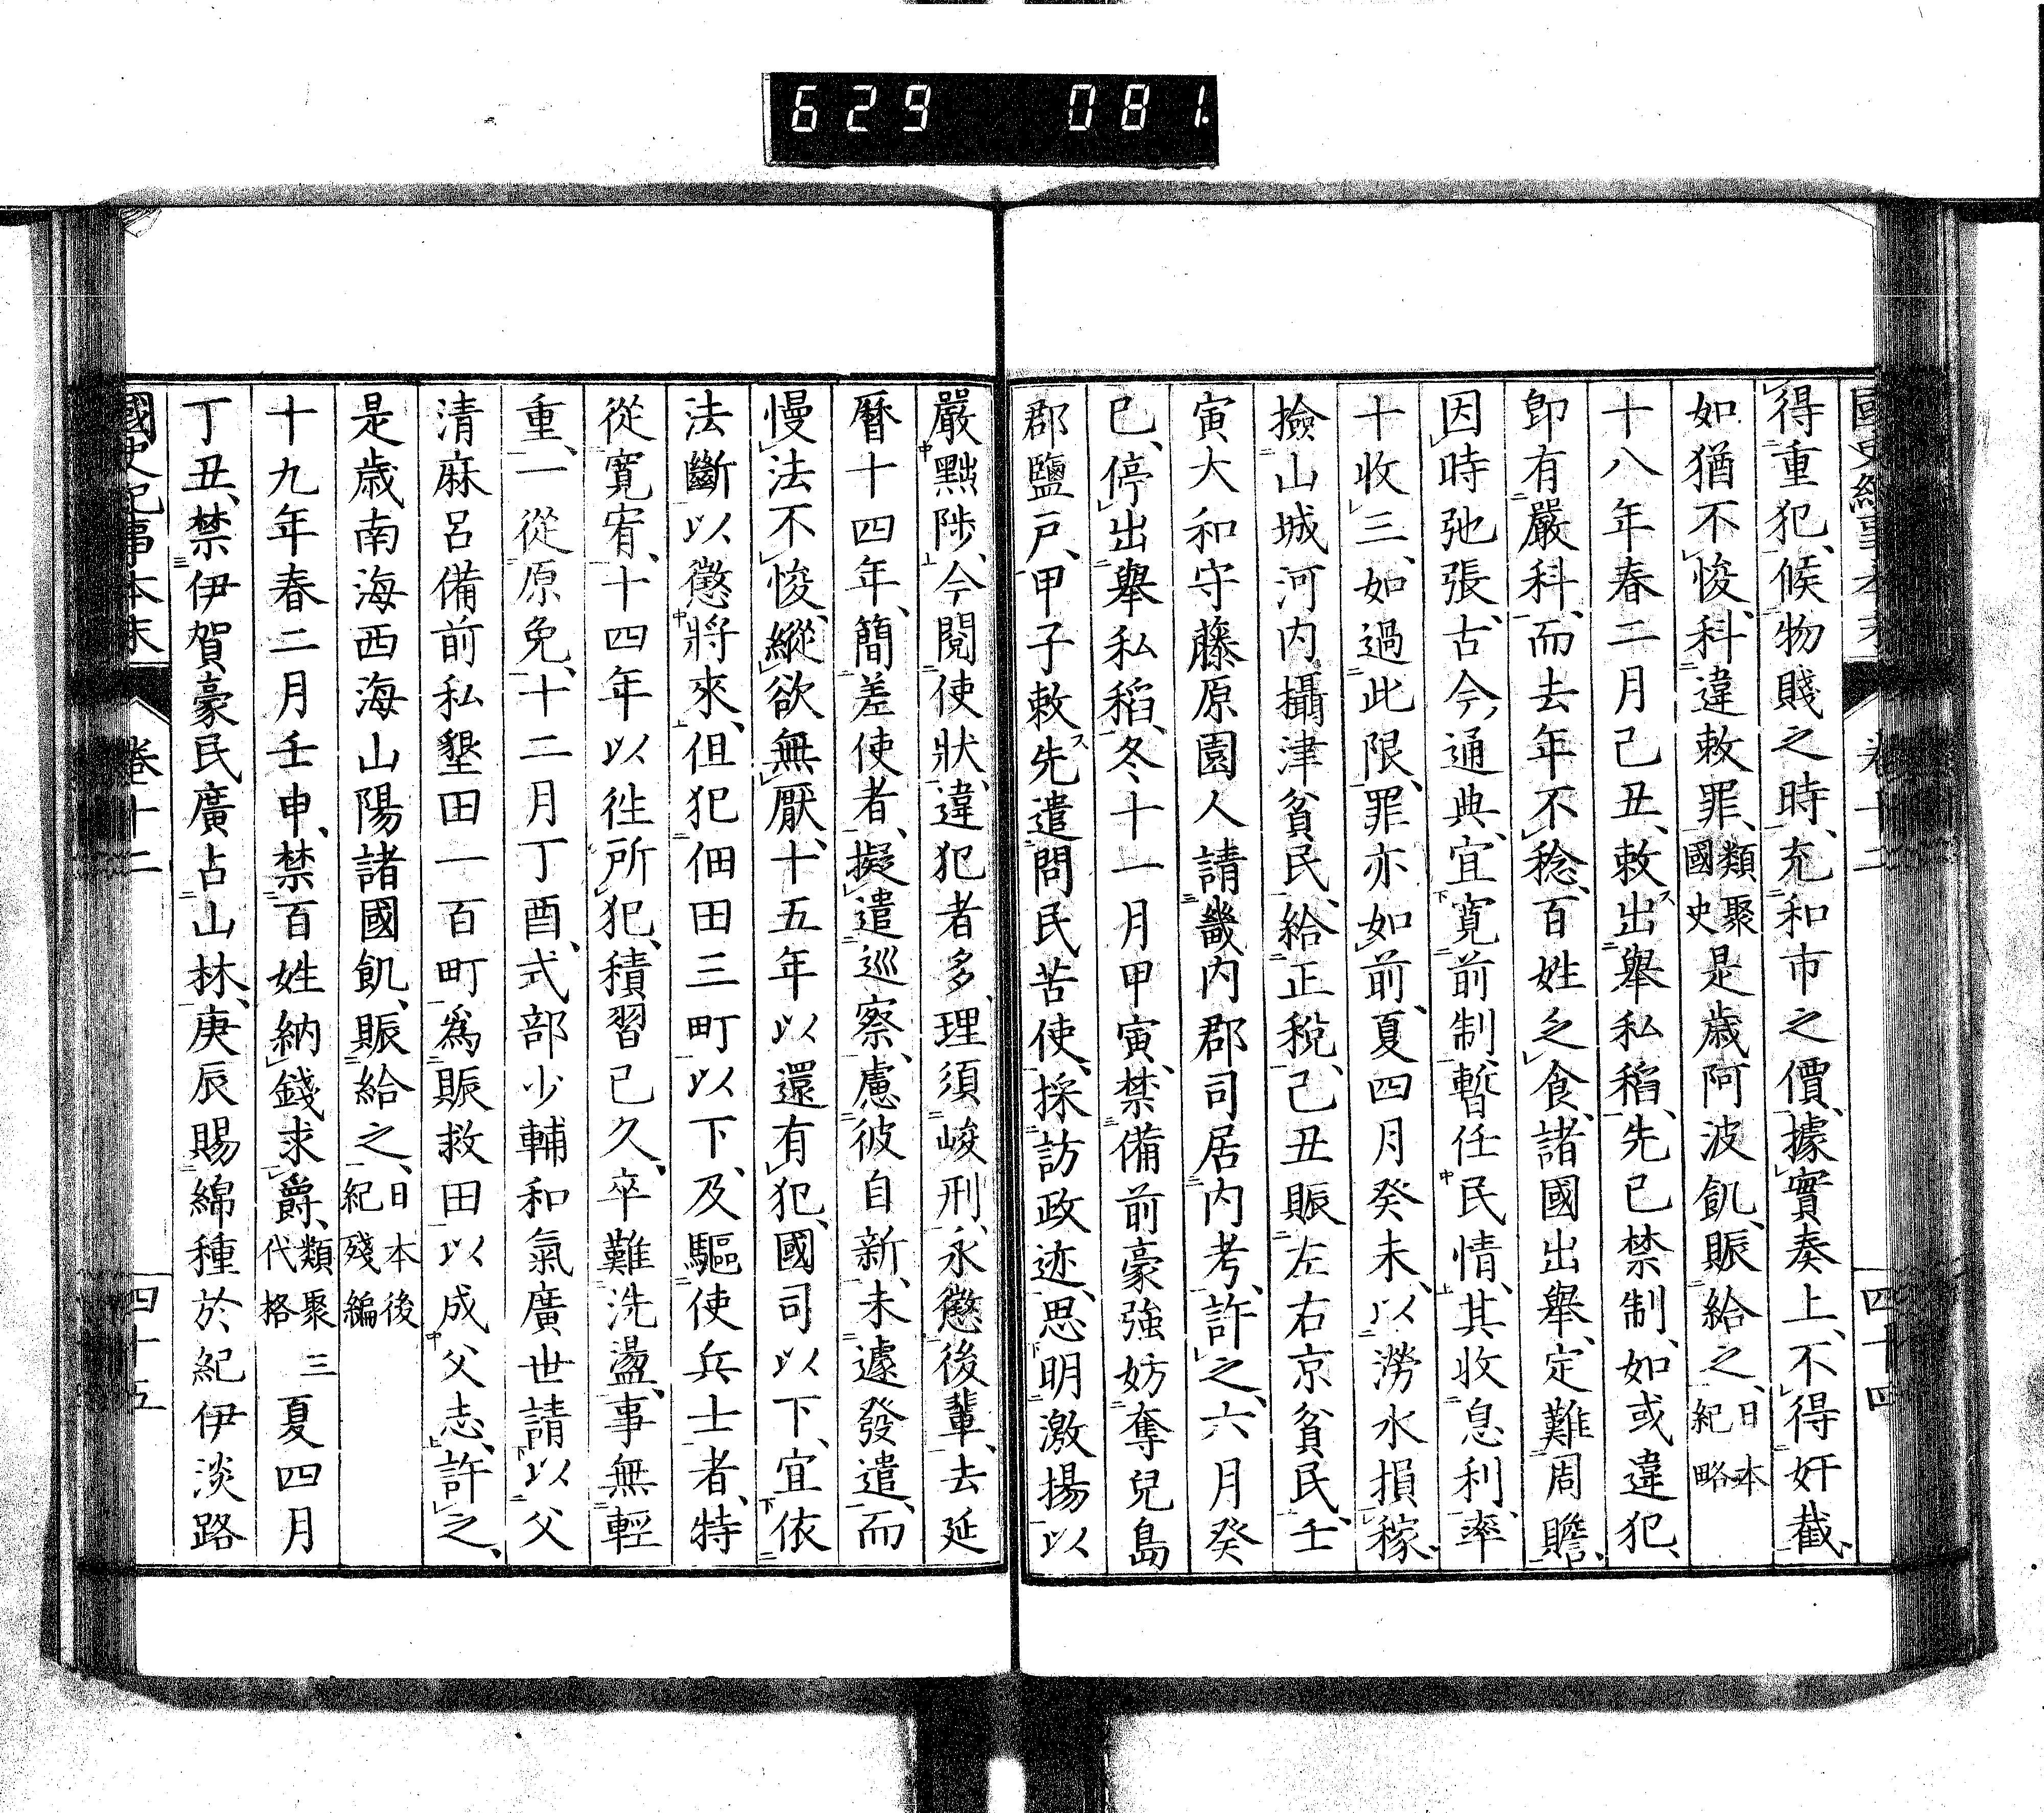 629 081.
國史紀事本末 卷十二 四十四
得重犯、候物賤之時、充和市之價、據實奏上、不得奸截、
如猶不悛、科違敕罪、類聚國史是歳阿波飢、賑給之、日本紀略
十八年春二月己丑、敕出舉私稻、先已禁制、如或違犯、
卽有嚴科、而去年不稔、百姓乏食、諸國出舉、定難周贍、
因時弛張、古今通典、宜寛前制、暫任民情、其收息利、率
十收三、如過此限、罪亦如前、夏四月癸未、以澇水損稼、
撿山城河内攝津貧民、給正税、己丑賑左右京貧民、壬
寅大和守藤原園人請畿内郡司居内考、許之、六月癸
巳、停出舉私稻、冬十一月甲寅、禁備前豪強妨奪兒島
郡鹽戸、甲子敕先遣問民苦使、採訪政迹、思明激揚以
嚴黜陟、今閲使狀、違犯者多、理須峻刑、永懲後輩、去延
曆十四年、簡差使者、擬遣巡察、慮彼自新、未遽發遣、而
慢法不悛、縱欲無厭、十五年以還有犯、國司以下、宜依
法斷以懲將來、但犯佃田三町以下、及驅使兵士者、特
從寛宥、十四年以徃所犯、積習已久、卒難洗盪、事無輕
重、一從原免、十二月丁酉、式部少輔和氣廣世請以父
清麻呂備前私墾田一百町爲賑救田以成父志、許之、
是歳南海西海山陽諸國飢、賑給之、日本後紀殘編
十九年春二月壬申、禁百姓納錢求爵、類聚三代格夏四月
丁丑、禁伊賀豪民廣占山林、庚辰賜綿種於紀伊淡路
國史紀事本末 卷十二 四十五